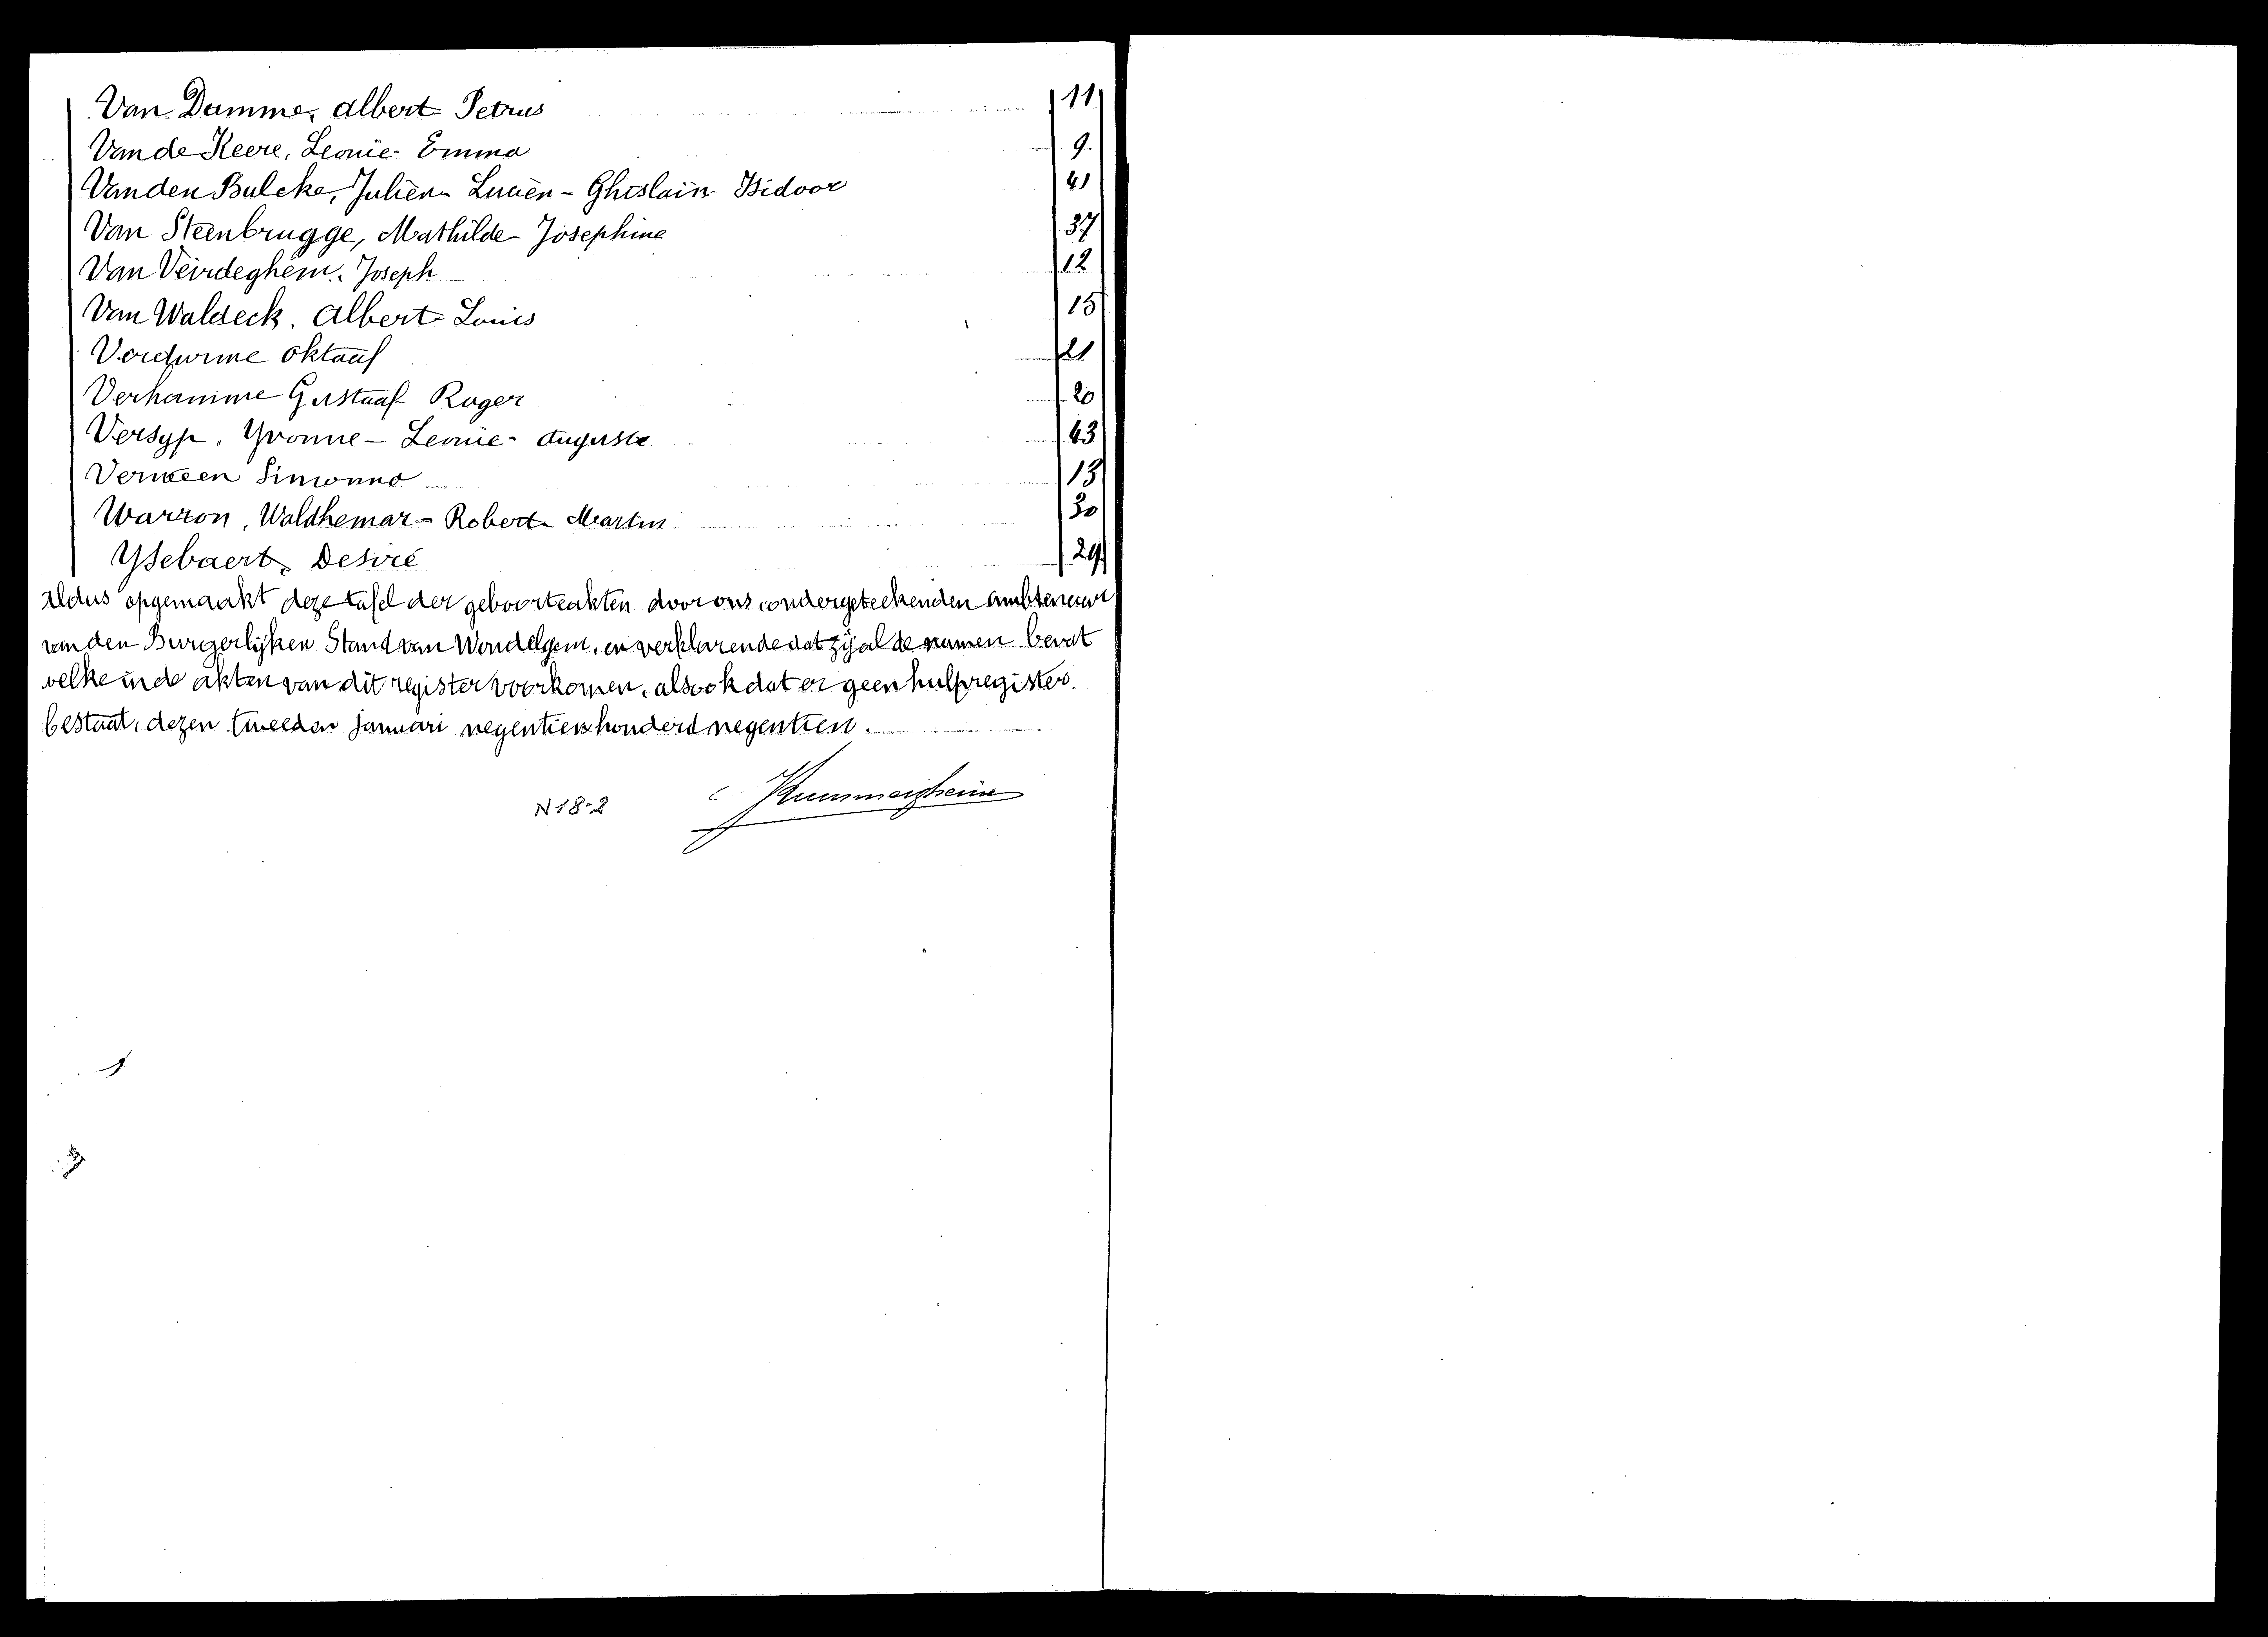 Van Damme, Albert Petrus 11
Van de Keere, Leonie- Emma 9
Vanden Bulcke, Julien- Lucien- Ghislain- Isidoor 41
Van Steenbrugge, Mathilde- Josephine 37
Van Veirdeghem, Joseph 12
Van Waldeck, Albert Louis 15
Oktaaf 21
Verhamme Gustaaf Roger 20
Versyp, Yvonne- Leonie- Auguste 43
Simonne 13
Warron, Waldhemar- Robert- Martin 30
Ysebaert, Desiré 29
Aldus opgemaakt deze tafel der geboorteakten door ons, ondergeteekenden ambtenaar
van den Burgerlijken Stand van Wondelgem, en verklarende dat zij al de namen bevat
welke in de akten van dit register voorkomen, alsook dat er geen hulpregister
bestaat, dezen tweeden Januari negentienhonderd negentien.
N 18-2